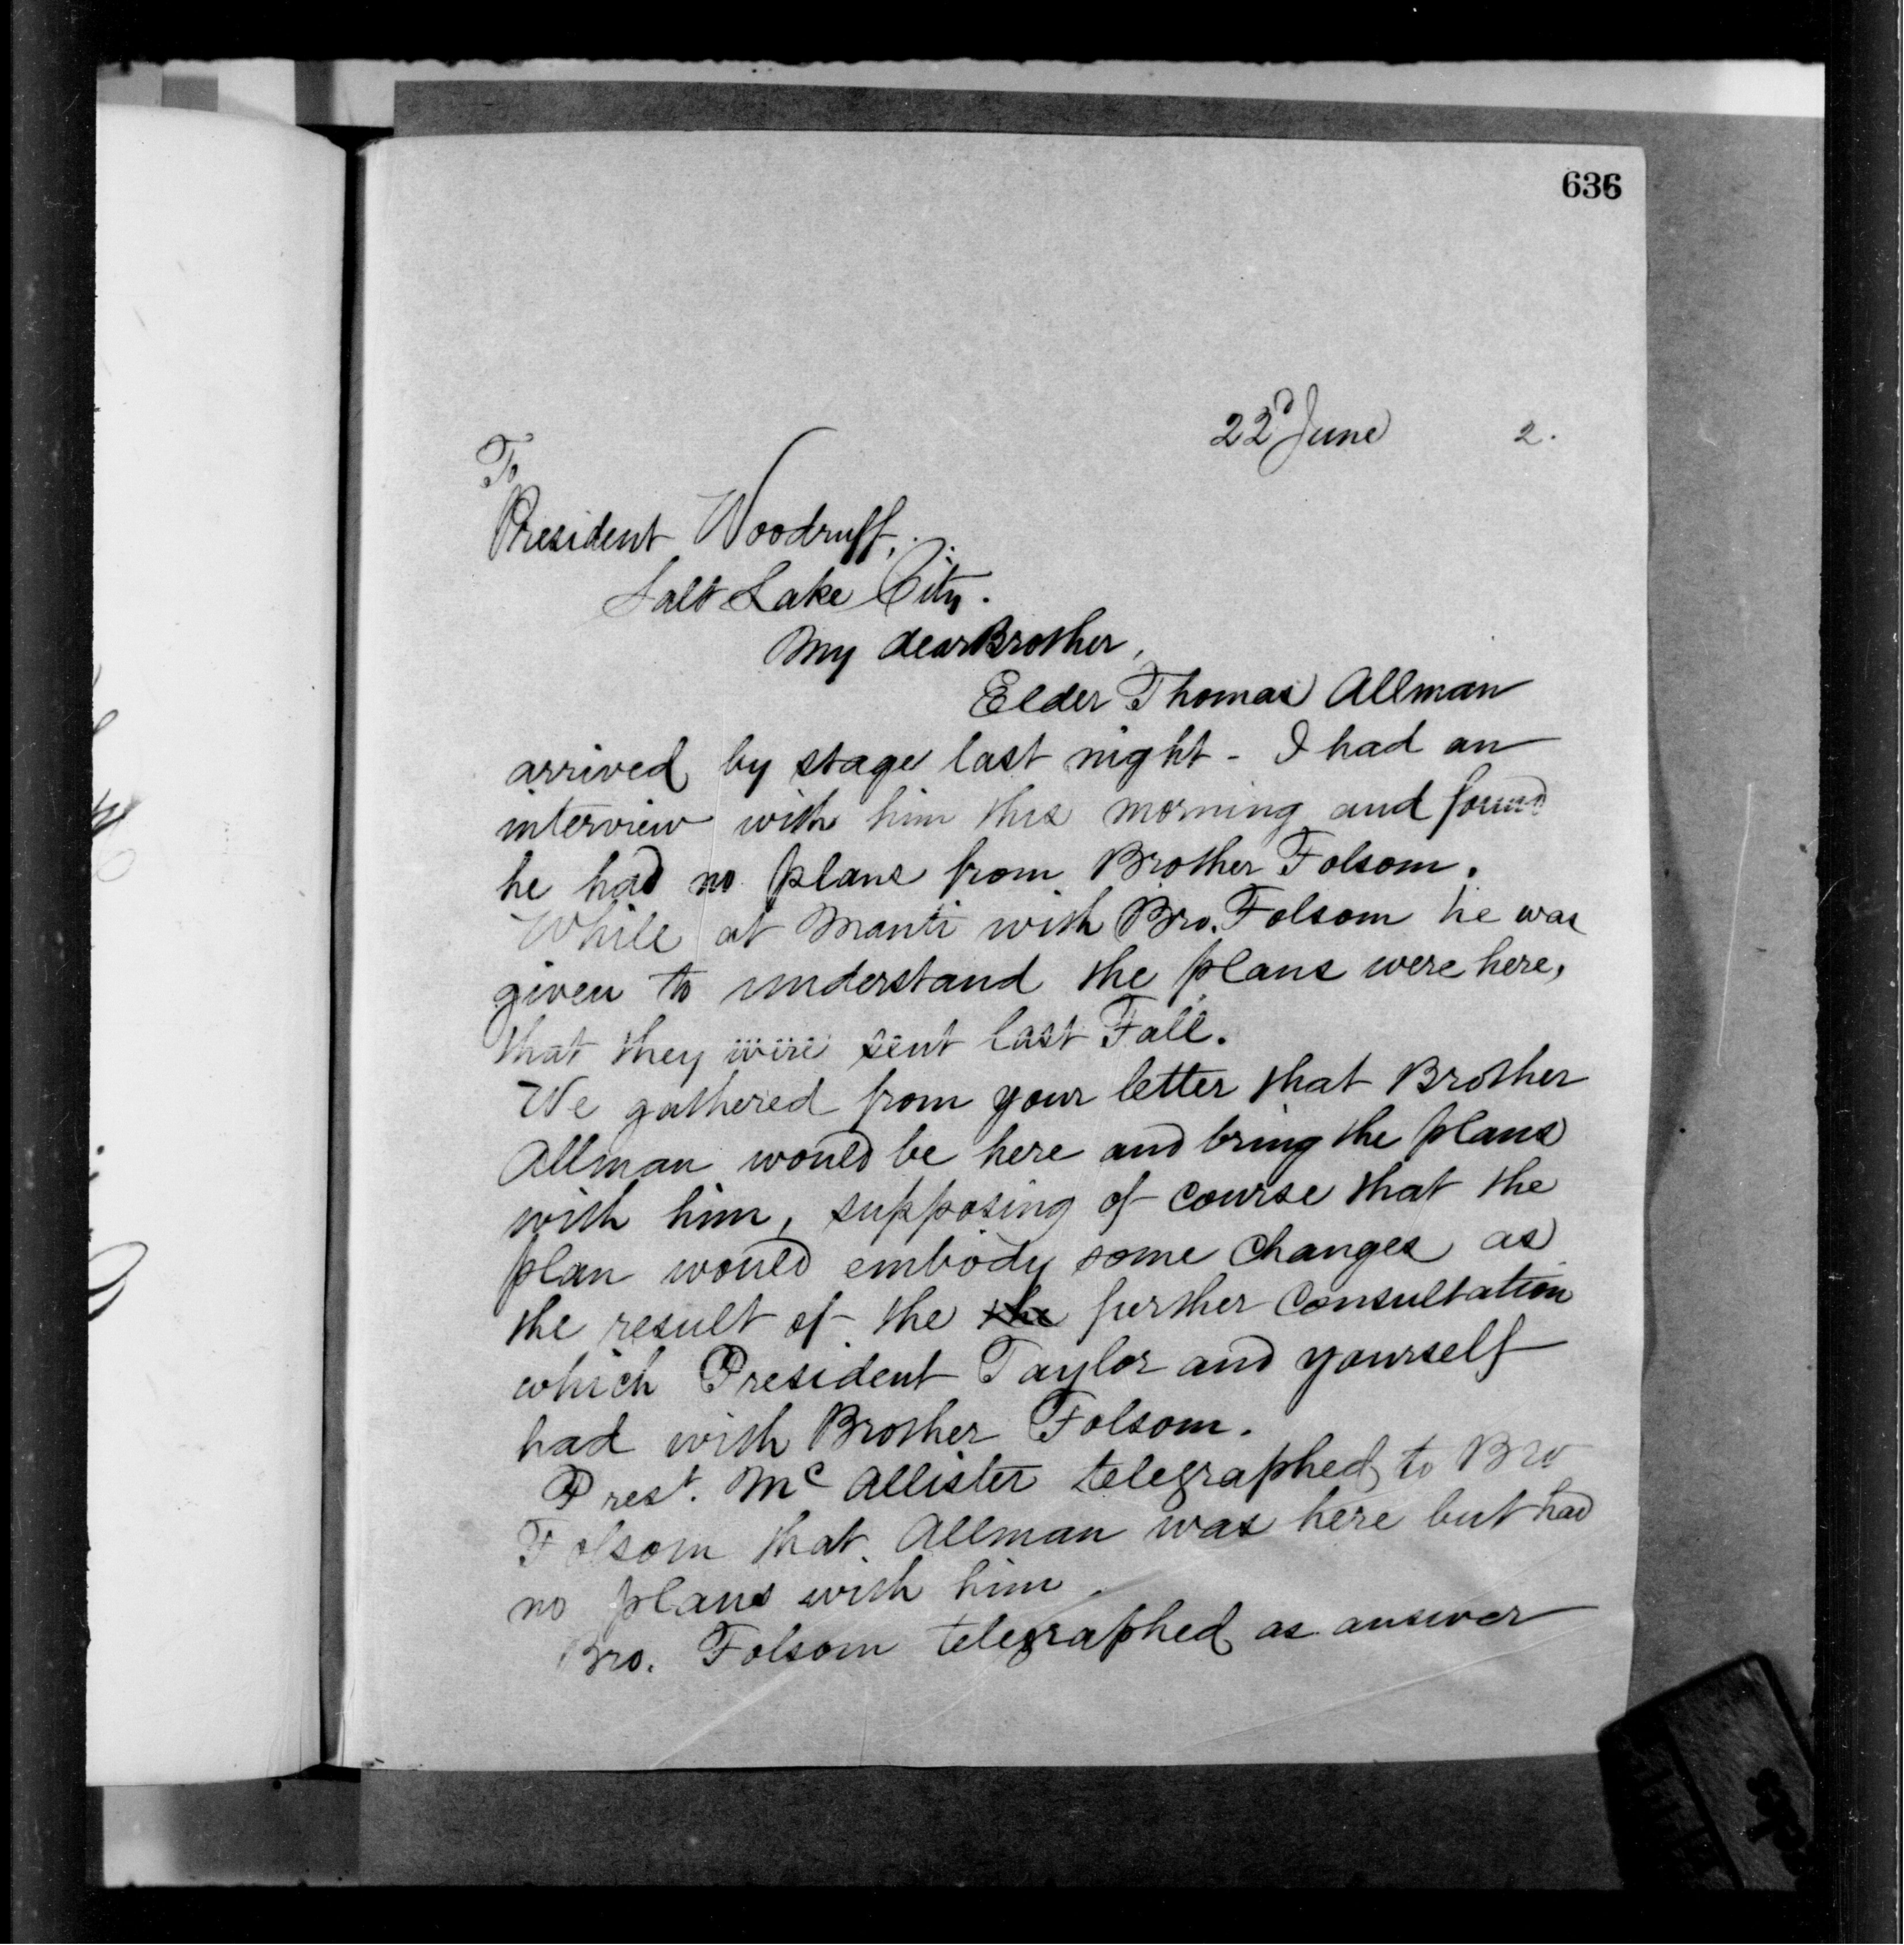 636
22d June 2.
To
President Woodruff,
Salt Lake City.
My dear Brother,
Elder Thomas Allman
arrived by stage last night - I had an
interview with him this morning and found
he had no plans from Brother Folsom.
While at Manti with Bro. Folsom he was
given to understand the plans were here,
that they were sent last Fall.
We gathered from your letter that Brother
Allman would be here and bring the plans
with him, supposing of course that the
plan would embody some changes as
the result of the the further consultation
which President Taylor and yourself
had with Brother Folsom.
Prest. McAllister telegraphed to Bro
Folsom that Allman was here but had
no plans with him.
Bro. Folsom telegraphed as answer